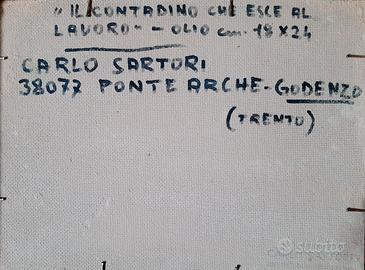 "IL CONTADINO CHE ESCE AL
LAVORO" - OLIO cm. 18X24
CARLO SARTORI
38077 PONTE ARCHE - GODENZO
(TRENTO)
subito